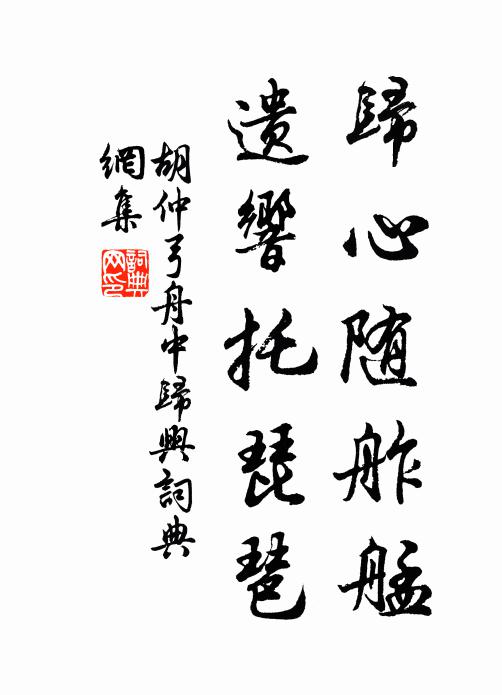 歸心随舴艋
遺響托琵琶
胡仲弓舟中歸興詞典
網集
詞典
网印